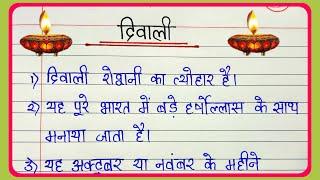 दिवाली
१) दिवाली रोशनी का त्योहार है।
२) यह पूरे भारत में बड़े हर्षोल्लास के साथ
मनाया जाता है।
३) यह अक्टूबर या नवंबर के महीने